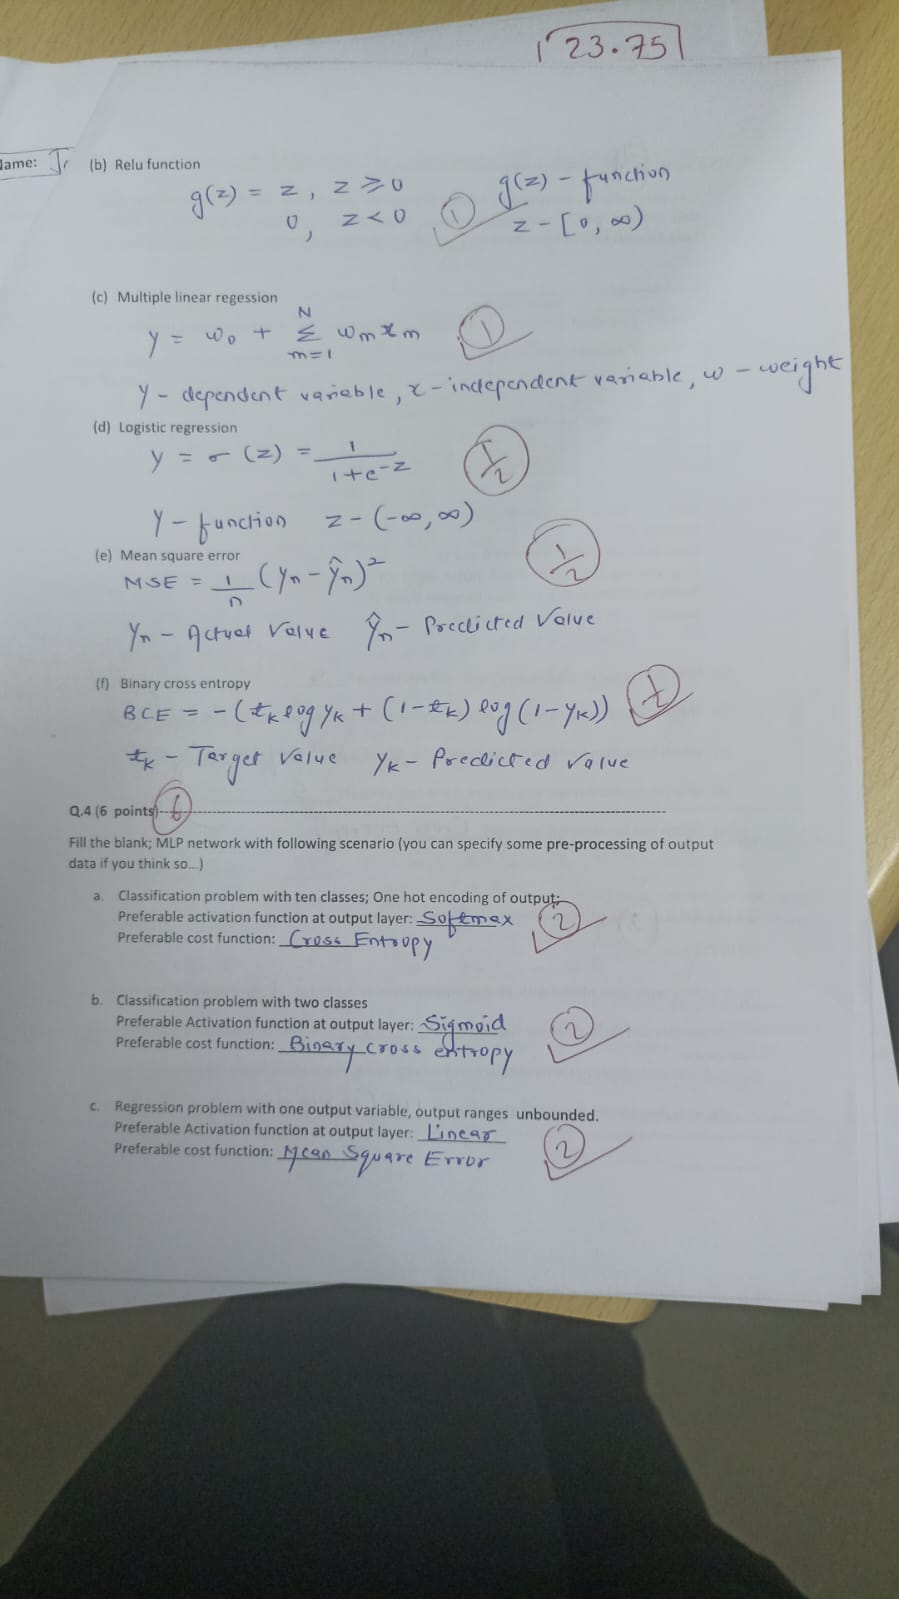 23.75
Name:
(b) Relu function
g(z) = z, z ≥ 0
0, z < 0
1
g(z) - function
z - [0, ∞)
(c) Multiple linear regession
y = w₀ + Σ_{m=1}^{N} w_m x_m
1
y - dependent variable, x - independent variable, w - weight
(d) Logistic regression
y = σ(z) = 1/(1+e^-z)
1/2
y - function z - (-∞, ∞)
(e) Mean square error
MSE = 1/n (yn - ŷn)²
1/2
yn - Actual Value ŷn - Predicted Value
(f) Binary cross entropy
BCE = - (tk log yk + (1-tk) log (1-yk))
tk - Target Value yk - Predicted value
Q.4 (6 points) 6
Fill the blank; MLP network with following scenario (you can specify some pre-processing of output
data if you think so...)
a. Classification problem with ten classes; One hot encoding of output:
Preferable activation function at output layer: Softmax
2
Preferable cost function: Cross Entropy
b. Classification problem with two classes
Preferable Activation function at output layer: Sigmoid
2
Preferable cost function: Binary cross entropy
c. Regression problem with one output variable, output ranges unbounded.
Preferable Activation function at output layer: Linear
2
Preferable cost function: Mean Square Error